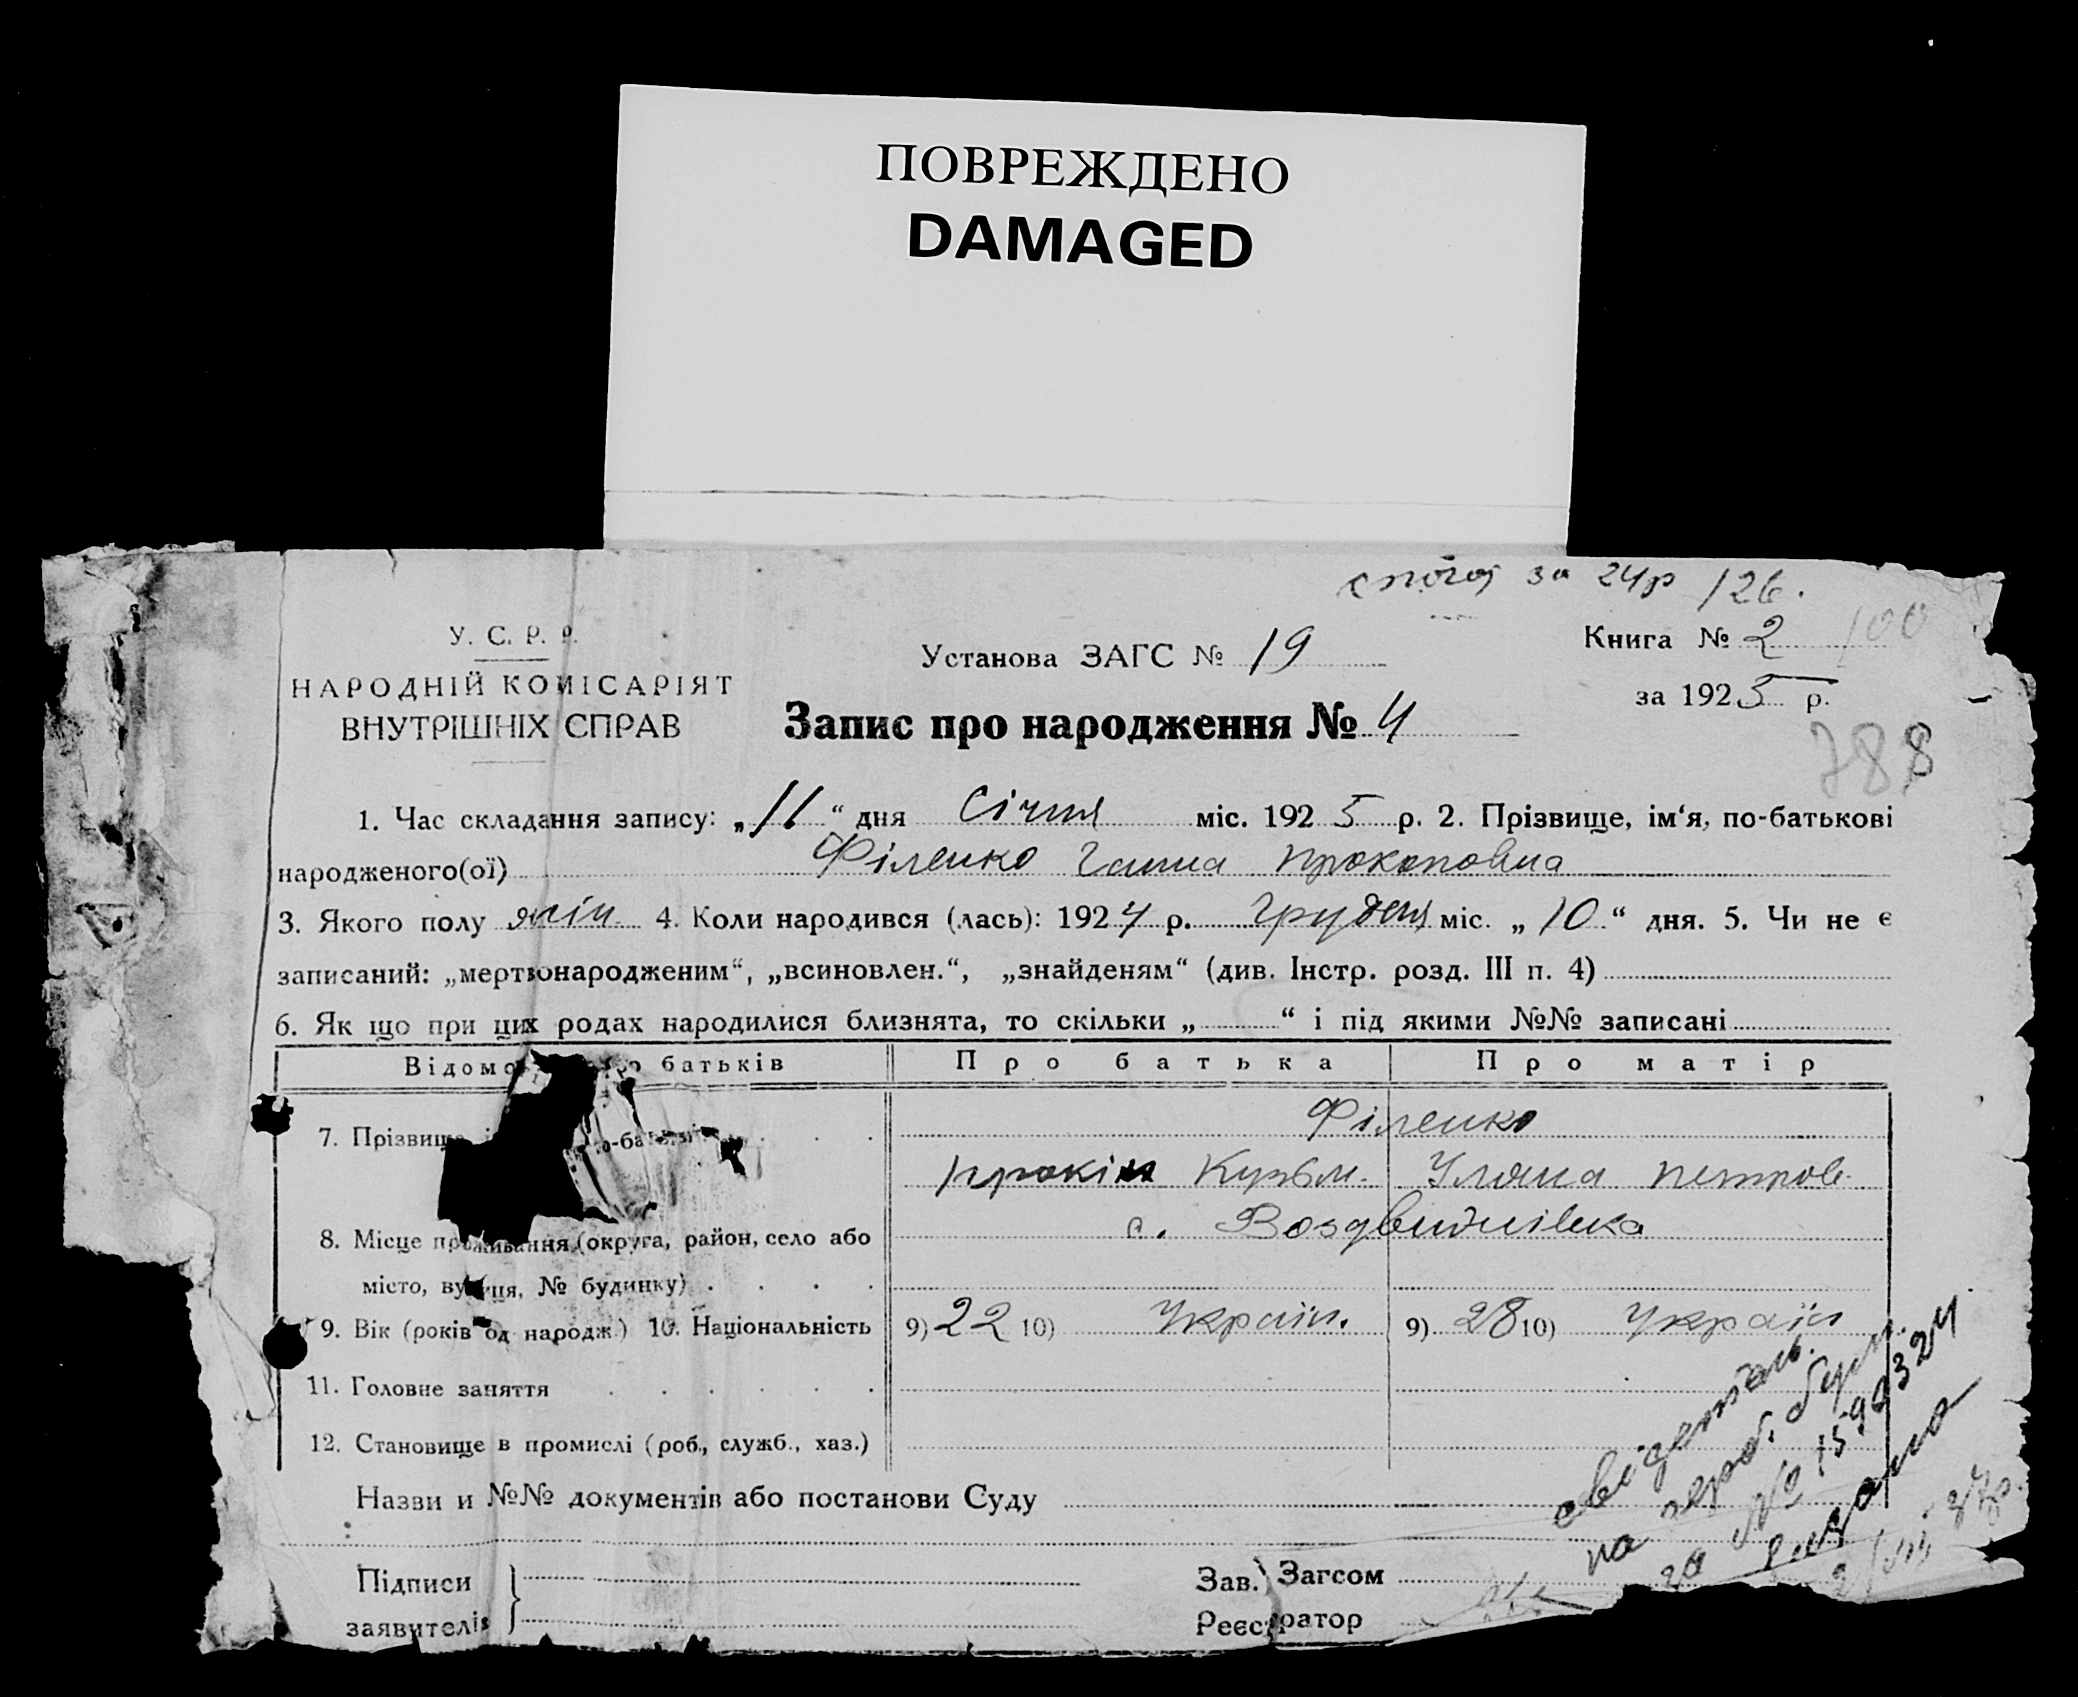 ПОВРЕЖДЕНО
DAMAGED
за 24р /26.
У. С. Р. Р.
НАРОДНІЙ КОМІСАРІЯТ
ВНУТРІШНІХ СПРАВ
Установа ЗАГС № 19
Книга № 2 100
за 1925 р.
Запис про народження № 4
788
1. Час складання запису: „11“ дня Січня міс. 1925 р. 2. Прізвище, ім‘я, по-батькові
народженого(ої) Філенко Ганна Прокоповна
3. Якого полу жін 4. Коли народився (лась): 1924 р. Грудня міс. „10“ дня. 5. Чи не є
записаний: „мертвонародженим“, „всиновлен.“, „знайденям“ (див. Інстр. розд. III п. 4)
6. Як що при цих родах народилися близнята, то скільки „ “ і під якими №№ записані
Відомо батьків Про батька Про матір
7. Прізвище Філенко
Прокіп Кузьм. Уляна Петров.
8. Місце проживання (округа, район, село або с. Воздвижнівка
місто, вулиця, № будинку)
9. Вік (років од народж.) 10. Національність 9) 22 10) Україн. 9) 28 10) Україн
11. Головне заняття
12. Становище в промислі (роб., служб., хаз.)
Назви и №№ документів або постанови Суду
Підписи
заявителів
Зав. Загсом
Реєстратор
свідетель.
на
за №
видано